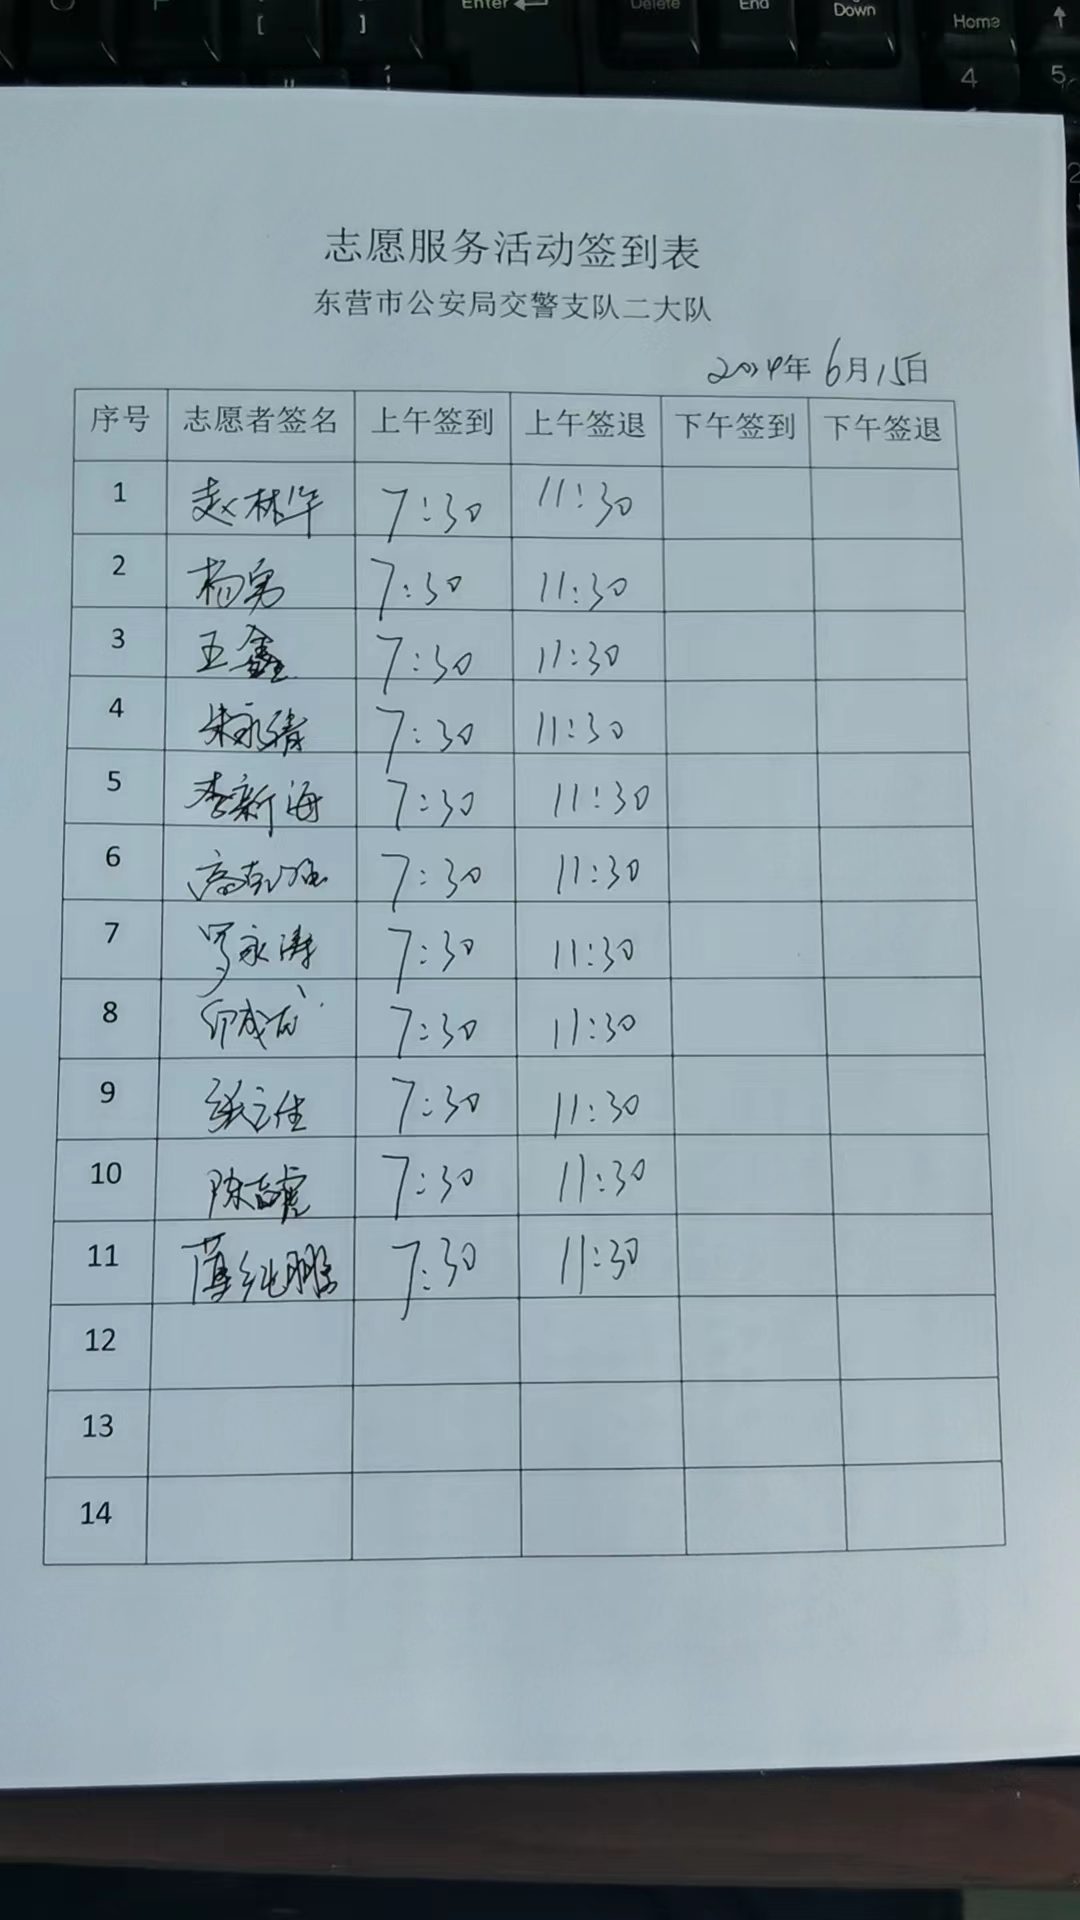 Enter
Delete
End
Down
Home
[
]
4
5
志愿服务活动签到表
东营市公安局交警支队二大队
2024年6月15日
序号 志愿者签名 上午签到 上午签退 下午签到 下午签退
1 赵林华 7:30 11:30
2 杨勇 7:30 11:30
3 王鑫 7:30 11:30
4 朱永清 7:30 11:30
5 李新海 7:30 11:30
6 7:30 11:30
7 罗永涛 7:30 11:30
8 7:30 11:30
9 张立佳 7:30 11:30
10 陈志虎 7:30 11:30
11 薄纯鹏 7:30 11:30
12
13
14